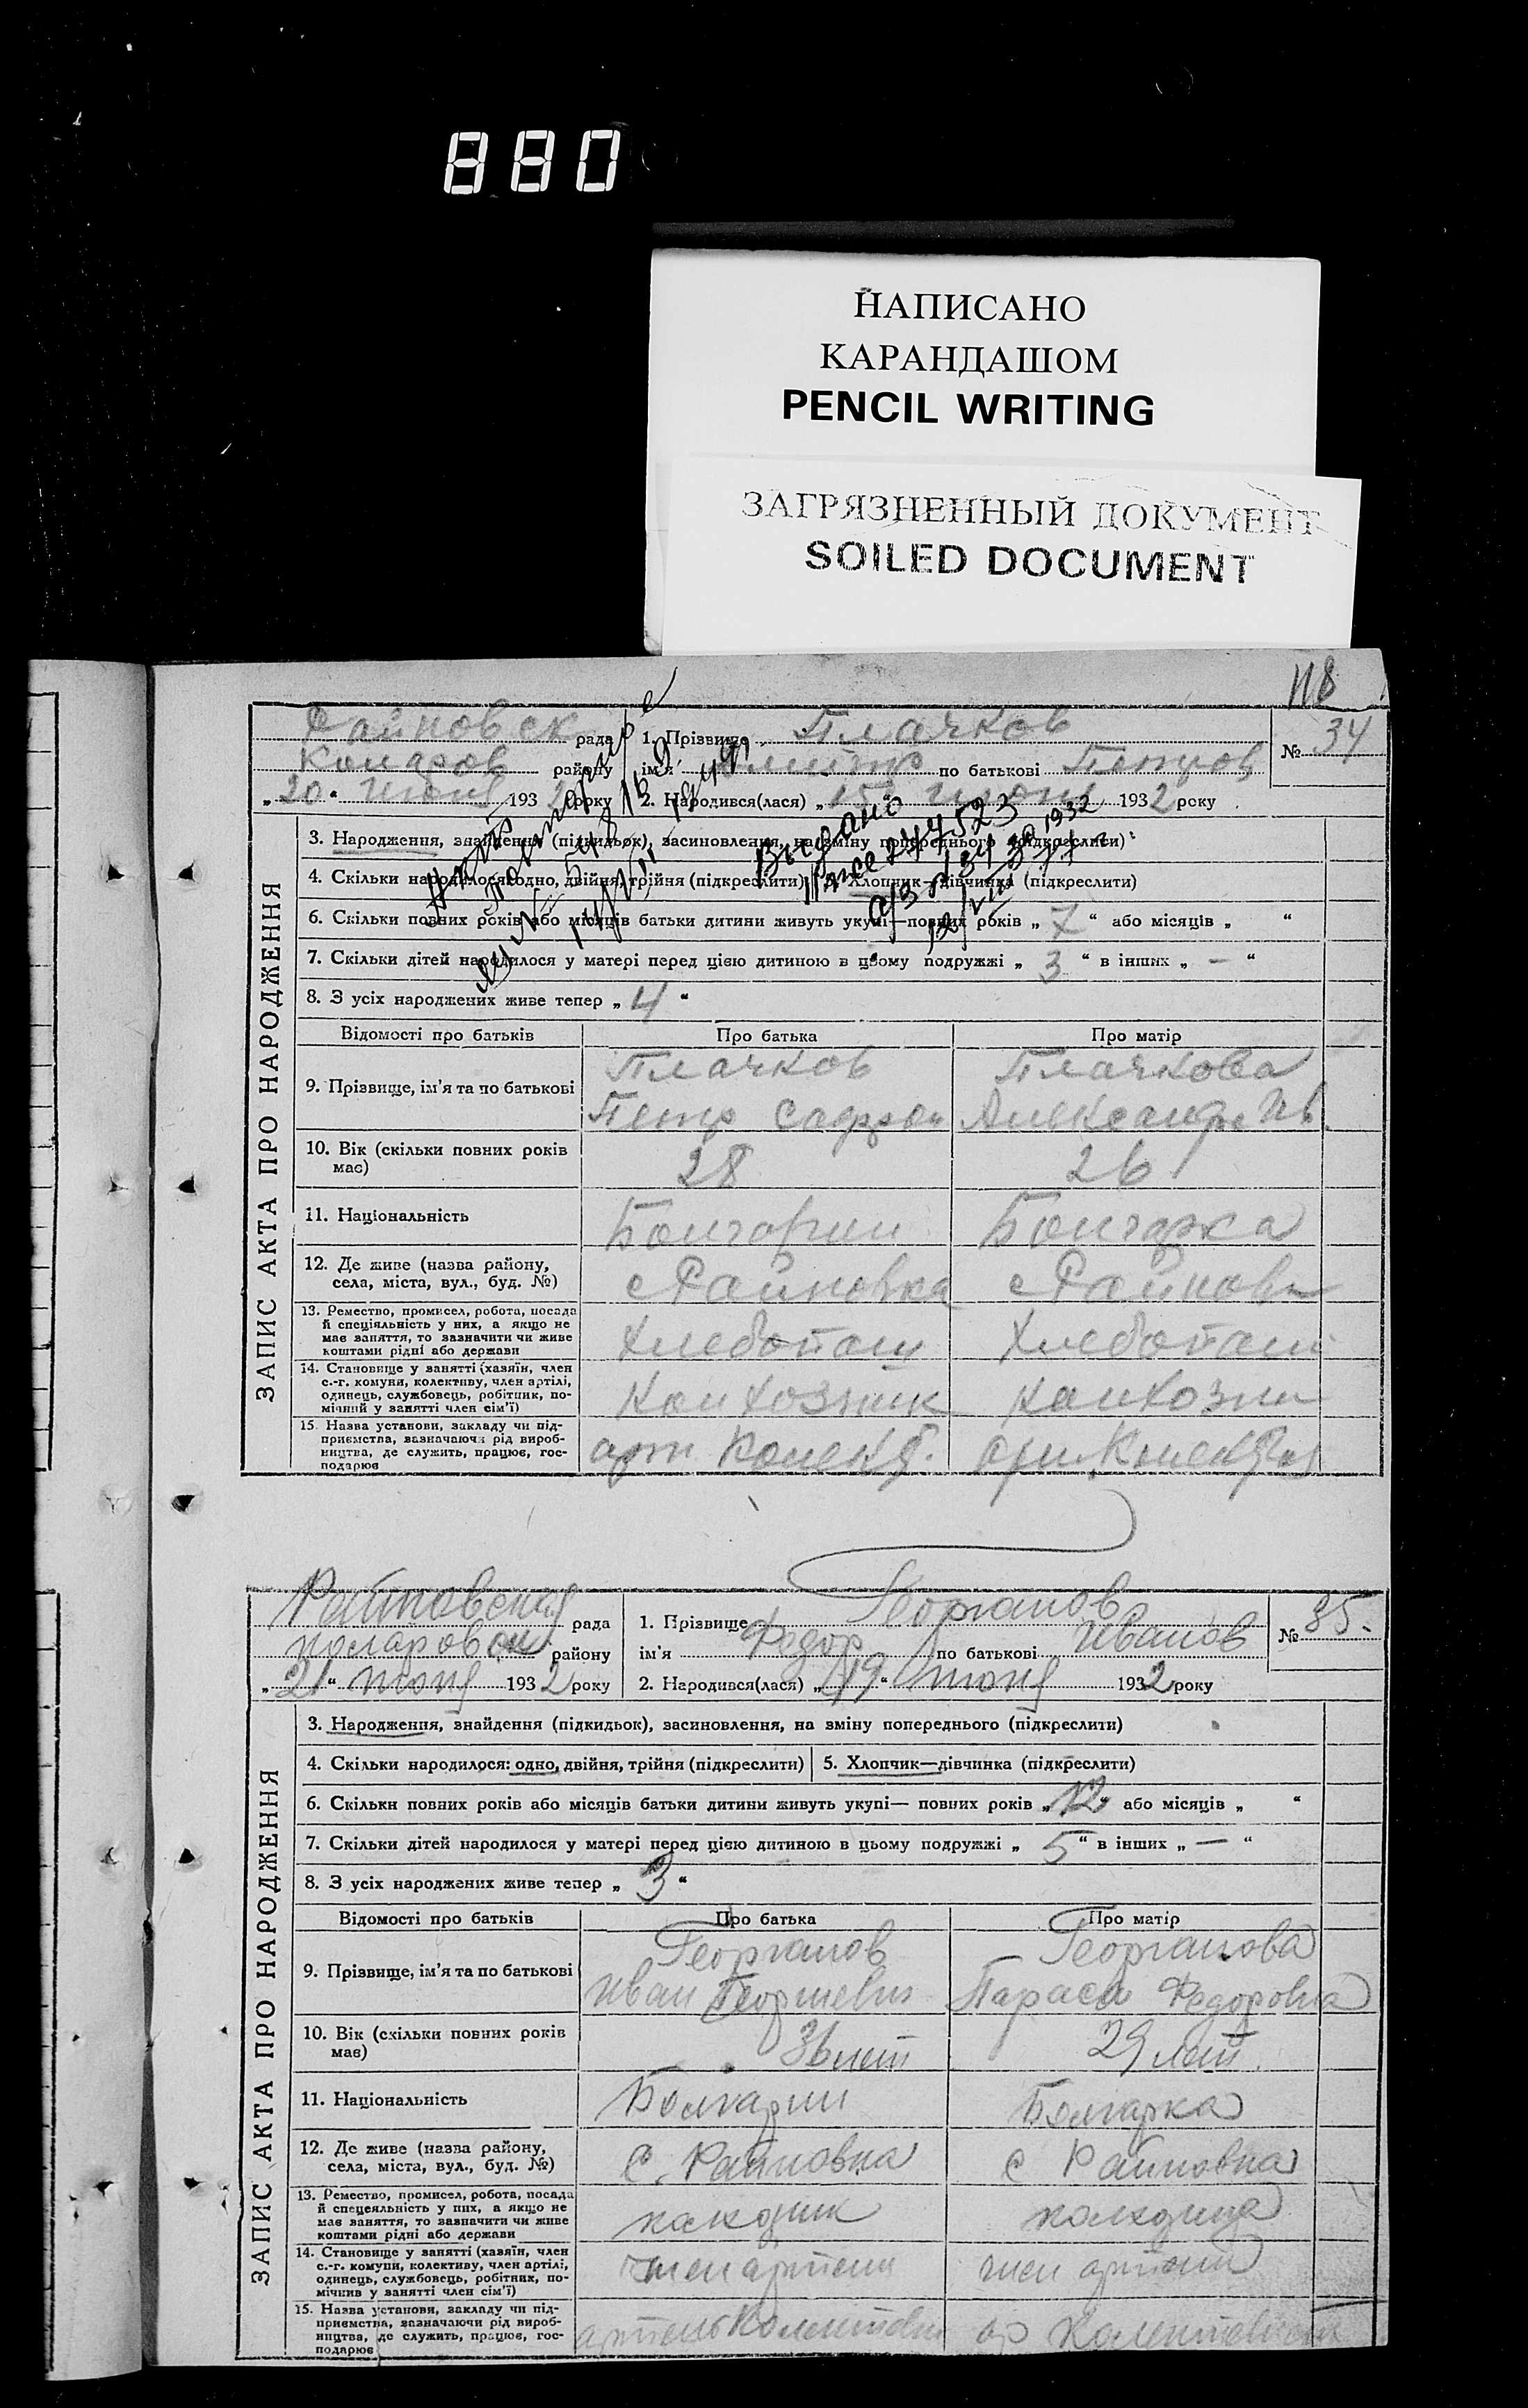 880
НАПИСАНО
КАРАНДАШОМ
PENCIL WRITING
ЗАГРЯЗНЕННЫЙ ДОКУМЕНТ
SOILED DOCUMENT
118
Райновск рада
Коларов району
„20“ июня 1932 року
1. Прізвище Плачков
ім'я по батькові Петров
2. Народився(лася) „15“ июня 1932 року
№ 34
Выдано
ЗАПИС АКТА ПРО НАРОДЖЕННЯ
3. Народження, знайдення (підкидьок), засиновлення, на зміну попереднього (підкреслити)
4. Скільки народилося: одно, двійня, трійня (підкреслити) Хлопчик—дівчинка (підкреслити)
6. Скільки повних років або місяців батьки дитини живуть укупі—повних років „7“ або місяців „ “
7. Скільки дітей народилося у матері перед цією дитиною в цьому подружжі „3“ в інших „—“
8. З усіх народжених живе тепер „4“
Відомості про батьків Про батька Про матір
9. Прізвище, ім'я та по батькові
Плачков Плачкова
Петр Александра Ив.
10. Вік (скільки повних років
має)
28 26
11. Національність Болгарин Болгарка
12. Де живе (назва району,
села, міста, вул., буд. №)
с Райновка с Райновка
13. Ремество, промисел, робота, посада
й спеціяльність у них, а якщо не
має заняття, то зазначити чи живе
коштами рідні або держави
Хлебопаш Хлебопаш
14. Становище у занятті (хазяїн, член
с.-г. комуни, колективу, член артілі,
одинець, службовець, робітник, по-
мічний у занятті член сім'ї)
Колхозник Колхозни
15. Назва установи, закладу чи під-
приємства, зазначаючи рід вироб-
ництва, де служить, працює, гос-
подарює
арт.
Райновская рада
Коларовск району
„21“ июня 1932 року
1. Прізвище Георганов
ім'я Федор по батькові Иванов
2. Народився(лася) „19“ июня 1932 року
№ 35.
ЗАПИС АКТА ПРО НАРОДЖЕННЯ
3. Народження, знайдення (підкидьок), засиновлення, на зміну попереднього (підкреслити)
4. Скільки народилося: одно, двійня, трійня (підкреслити) 5. Хлопчик—дівчинка (підкреслити)
6. Скільки повних років або місяців батьки дитини живуть укупі— повних років „12“ або місяців „ “
7. Скільки дітей народилося у матері перед цією дитиною в цьому подружжі „5“ в інших „—“
8. З усіх народжених живе тепер „3“
Відомості про батьків Про батька Про матір
9. Прізвище, ім'я та по батькові
Георганов Георганова
Иван Георгиевич Параска Федоровна
10. Вік (скільки повних років
має)
36 лет 29 лет
11. Національність Болгарин Болгарка
12. Де живе (назва району,
села, міста, вул., буд. №)
С. Райновка с Райновка
13. Ремество, промисел, робота, посада
й спецеяльність у них, а якщо не
має заняття, то зазначити чи живе
коштами рідні або держави
14. Становище у занятті (хазяїн, член
с.-г. комуни, колективу, член артілі,
одинець, службовець, робітник, по-
мічник у занятті член сім'ї)
член артели член артели
15. Назва установи, закладу чи під-
приємства, зазначаючи рід вироб-
ництва, де служить, працює, гос-
подарює
артель